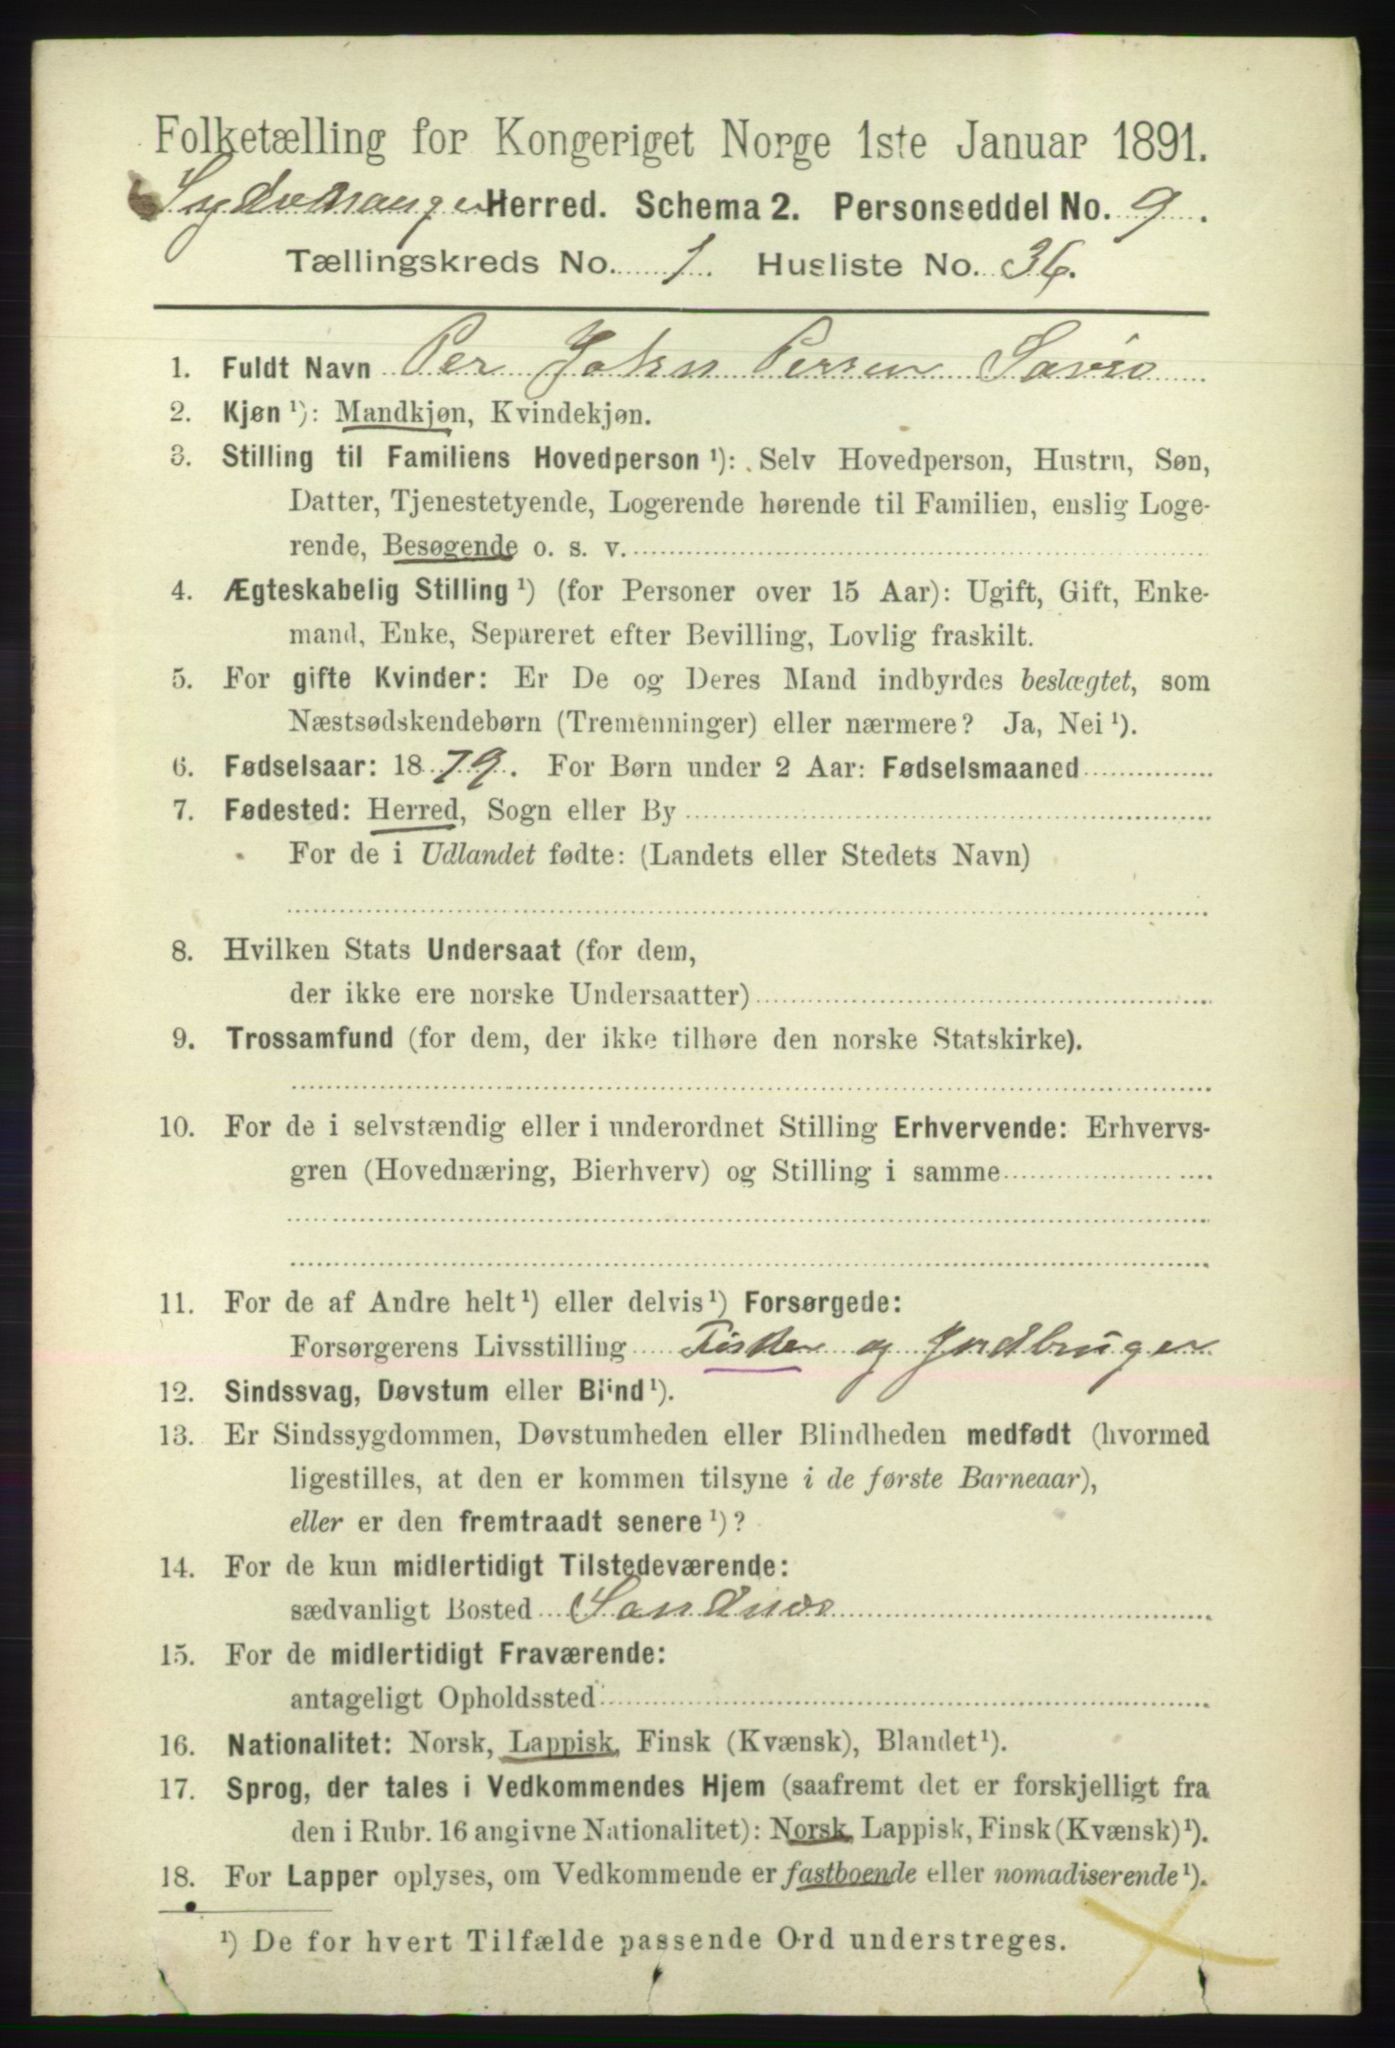 Folketælling for Kongeriget Norge 1ste Januar 1891.
Sydvaranger Herred. Schema 2. Personseddel No. 9.
Tællingskreds No. 1. Husliste No. 36.
1. Fuldt Navn Per John Persen Savio
2. Kjøn ¹): Mandkjøn, Kvindekjøn.
3. Stilling til Familiens Hovedperson ¹): Selv Hovedperson, Hustru, Søn,
Datter, Tjenestetyende, Logerende hørende til Familien, enslig Loge-
rende, Besøgende o. s. v.
4. Ægteskabelig Stilling ¹) (for Personer over 15 Aar): Ugift, Gift, Enke-
mand, Enke, Separeret efter Bevilling, Lovlig fraskilt.
5. For gifte Kvinder: Er De og Deres Mand indbyrdes beslægtet, som
Næstsødskendebørn (Tremenninger) eller nærmere? Ja, Nei ¹).
6. Fødselsaar: 1879. For Børn under 2 Aar: Fødselsmaaned
7. Fødested: Herred, Sogn eller By
For de i Udlandet fødte: (Landets eller Stedets Navn)
8. Hvilken Stats Undersaat (for dem,
der ikke ere norske Undersaatter)
9. Trossamfund (for dem, der ikke tilhøre den norske Statskirke).
10. For de i selvstændig eller i underordnet Stilling Erhvervende: Erhvervs-
gren (Hovednæring, Bierhverv) og Stilling i samme
11. For de af Andre helt ¹) eller delvis ¹) Forsørgede:
Forsørgerens Livsstilling Fisker og Jordbruger
12. Sindssvag, Døvstum eller Blind ¹).
13. Er Sindssygdommen, Døvstumheden eller Blindheden medfødt (hvormed
ligestilles, at den er kommen tilsyne i de første Barneaar),
eller er den fremtraadt senere ¹)?
14. For de kun midlertidigt Tilstedeværende:
sædvanligt Bosted Sandnæs
15. For de midlertidigt Fraværende:
antageligt Opholdssted
16. Nationalitet: Norsk, Lappisk, Finsk (Kvænsk), Blandet ¹).
17. Sprog, der tales i Vedkommendes Hjem (saafremt det er forskjelligt fra
den i Rubr. 16 angivne Nationalitet): Norsk, Lappisk, Finsk (Kvænsk) ¹).
18. For Lapper oplyses, om Vedkommende er fastboende eller nomadiserende ¹).
¹) De for hvert Tilfælde passende Ord understreges.